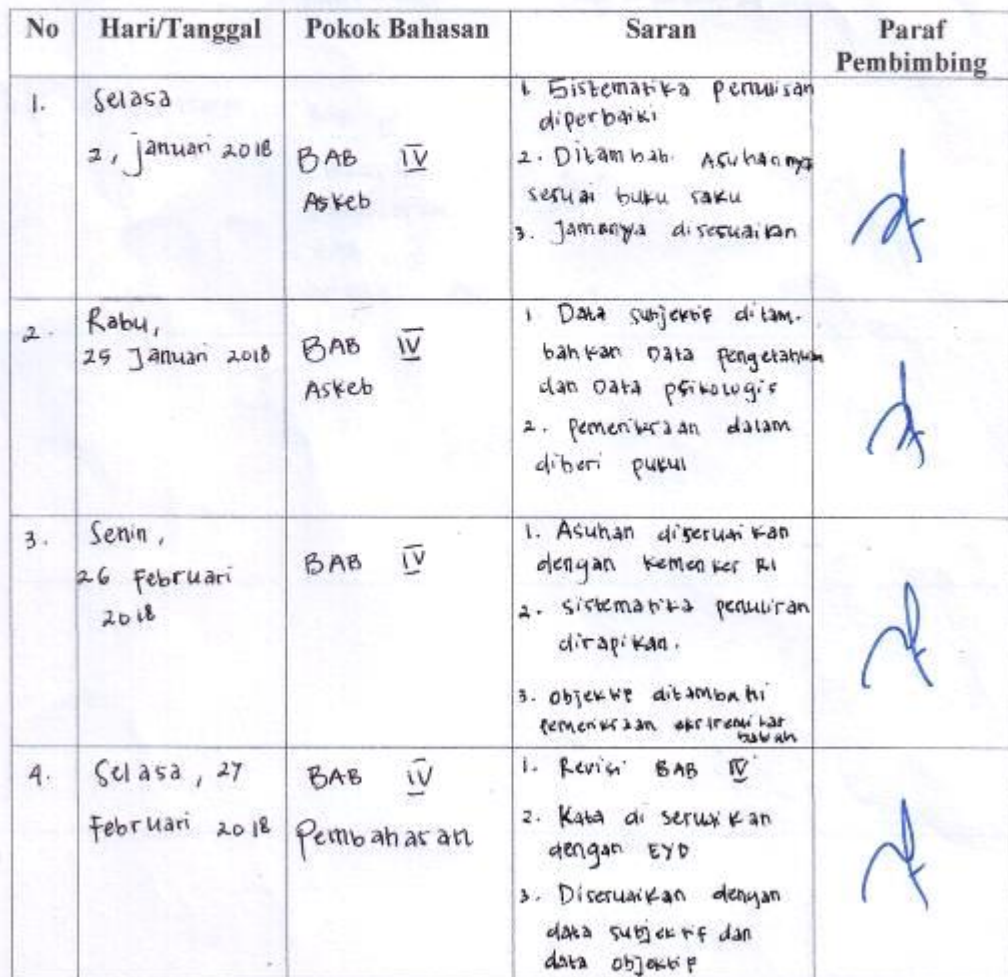 No Hari/Tanggal Pokok Bahasan Saran Paraf
Pembimbing
1. Selasa
2, januari 2018
BAB IV
Askeb
1. Sistematika penulisan
diperbaiki
2. Ditambah Asuhannya
sesuai buku saku
3. Jamanya disesuaikan
2. Rabu,
25 Januari 2018
BAB IV
Askeb
1. Data subjektif ditam-
bahkan Data pengetahuan
dan Data psikologis
2. pemeriksaan dalam
diberi pukul
3. Senin,
26 Februari
2018
BAB IV
1. Asuhan disesuaikan
dengan Kemenkes RI
2. sistematika penulisan
dirapikan.
3. objektif ditambahi
pemeriksaan ekstremitas
bawah
4. Selasa, 27
Februari 2018
BAB IV
Pembahasan
1. Revisi BAB IV
2. Kata di sesuaikan
dengan EYD
3. Disesuaikan dengan
data subjektif dan
data objektif